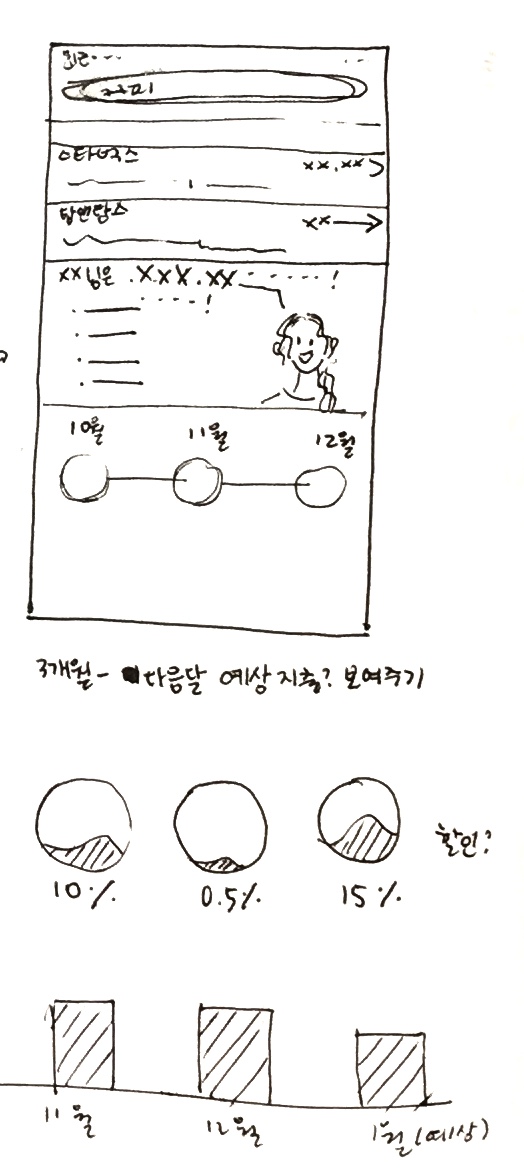 최근...
커피
스타벅스 xx.xx
탐앤탐스 xx
xx님은 .XXX.XX -----!
----!
10월 11월 12월
3개월 - 다음달 예상 지출? 보여주기
10% 0.5% 15% 할인?
11월 12월 1월(예상)